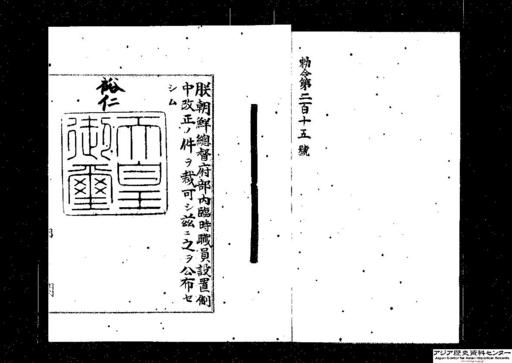 勅令第二百十五號
朕朝鮮總督府部內臨時職員設置制
中改正ノ件ヲ裁可シ茲ニ之ヲ公布セ
シム
裕仁
天皇
御璽
アジア歴史資料センター
Japan Center for Asian Historical Records